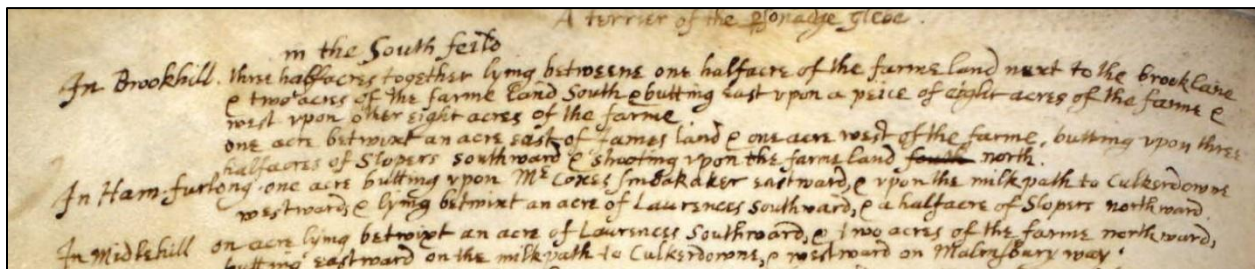 A terrier of the psonadge glebe.
in the South feild
In Brookhill. three halfacres together lying betweene one halfacre of the farme land next to the brooklane
& two acres of the farme land South & butting east vpon a peice of eight acres of the farme &
west vpon other eight acres of the farme.
one acre betwixt an acre east of James land & one acre west of the farme, butting vpon three
halfacres of Slopers southward & shooting vpon the farme land south north.
In Ham-furlong. one acre butting vpon Mr Coxes eastward, & vpon the milkpath to Culkerdowne
westward, & lying betwixt an acre of Laurences Southward, & a halfacre of Slopers northward.
In Midlehill on acre lying betwixt an acre of Laurences Southward, & two acres of the farme northward,
butting eastward on the milkpath to Culkerdowne, & westward on Malmsbury way.